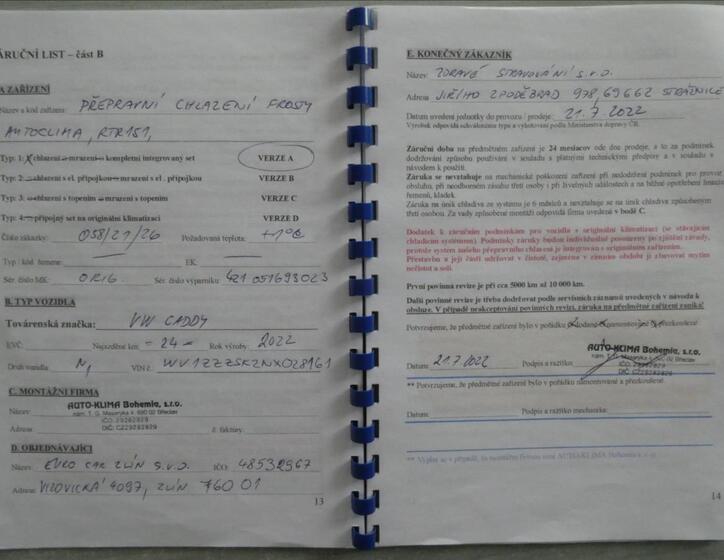 ÁRUČNÍ LIST – část B
A ZAŘÍZENÍ
Název a kód zařízení: PŘEPRAVNÍ CHLAZENÍ FROSTY
AUTOCLIMA, RTR151,
Typ: 1: chlazení – mrazení – kompletní integrovaný set VERZE A
Typ: 2: chlazení s el. přípojkou – mrazení s el. přípojkou VERZE B
Typ: 3: chlazení s topením – mrazení s topením VERZE C
Typ: 4: přípojný set na originální klimatizaci VERZE D
Číslo zakázky: 058/21/26 Požadovaná teplota: +1°C
Typ / kód řemene: EK:
Sér. číslo MK: OR16 Sér. číslo výparníku: 421 051693023
B. TYP VOZIDLA
Továrenská značka: VW CADDY
EVČ: Najezděné km: = 24 = Rok výroby: 2022
Druh vozidla N1 VIN č. WV1ZZZSKZNX028161
C. MONTÁŽNÍ FIRMA
AUTO-KLIMA Bohemia, s.r.o.
Název nám. T. G. Masaryka 690 02 Břeclav
IČO: 29282829
Adresa DIČ: CZ29282829 č. faktury:
D. OBJEDNÁVAJÍCÍ
Název: EURO CAR ZLÍN s.r.o. IČO: 48532967
Adresa: VIZOVICKÁ 4097, ZLÍN 760 01
13
E. KONEČNÝ ZÁKAZNÍK
Název: ZDRAVÉ STRAVOVÁNÍ s.r.o.
Adresa JIŘÍHO Z PODĚBRAD 978, 69662 STRÁŽNICE
Datum uvedení jednotky do provozu / prodeje: 21.7.2022
Výrobek odpovídá schválenému typu a vyhotovení podle Ministerstva dopravy ČR.
Záruční doba na předmětné zařízení je 24 mesiacov ode dou prodeje, a to za podmínek
dodržování způsobu používání v souladu s platnými technickými předpisy a v souladu s
návodem k použití.
Záruka se nevztahuje na mechanické poškození zařízení při nedodržení podmínek pro provoz
obsluhu, při neodborném zásahu třetí osoby i při živelných událostech a na běžné opotřebení
řemenů, kladek.
Záruka na únik chladiva ze systému je 6 měsíců a nevztahuje se na únik chladiva způsobeným
třetí osobou. Za vady způsobené montáží odpovídá firma uvedená v bodě C.
Dodatek k záručním podmínkám pro vozidla s originální klimatizací (se stávajícím
chladícím systémem). Podmínky záruky budou individuálně posouzeny po zjištění závady,
protože systém našeho přepravního chlazení je integrován s originálním zařízením.
Přestavbu a její části udržovat v čistotě, zejména v zimním období ji zbavovat mytím
nečistot a soli.
První povinná revize je při cca 5000 km až 10 000 km.
Další povinné revize je třeba dodržet podle servisních záznamů uvedených v návodu k
obsluze. V případě neakceptování povinných revizí, záruka na předmětné zařízení zaniká!
Potvrzujeme, že předmětné zařízení bylo v pořádku
AUTO-KLIMA Bohemia, s.r.o.
nám. T. G. Masaryka 690 02 Břeclav
IČO: 29282829
Datum: 21.7.2022 Podpis a razítko DIČ: CZ29282829
** Potvrzujeme, že předmětné zařízení bylo v pořádku namontované a přezkoušené.
Datum: Podpis a razítko mechanika:
** Vyplní se v případě, že
14